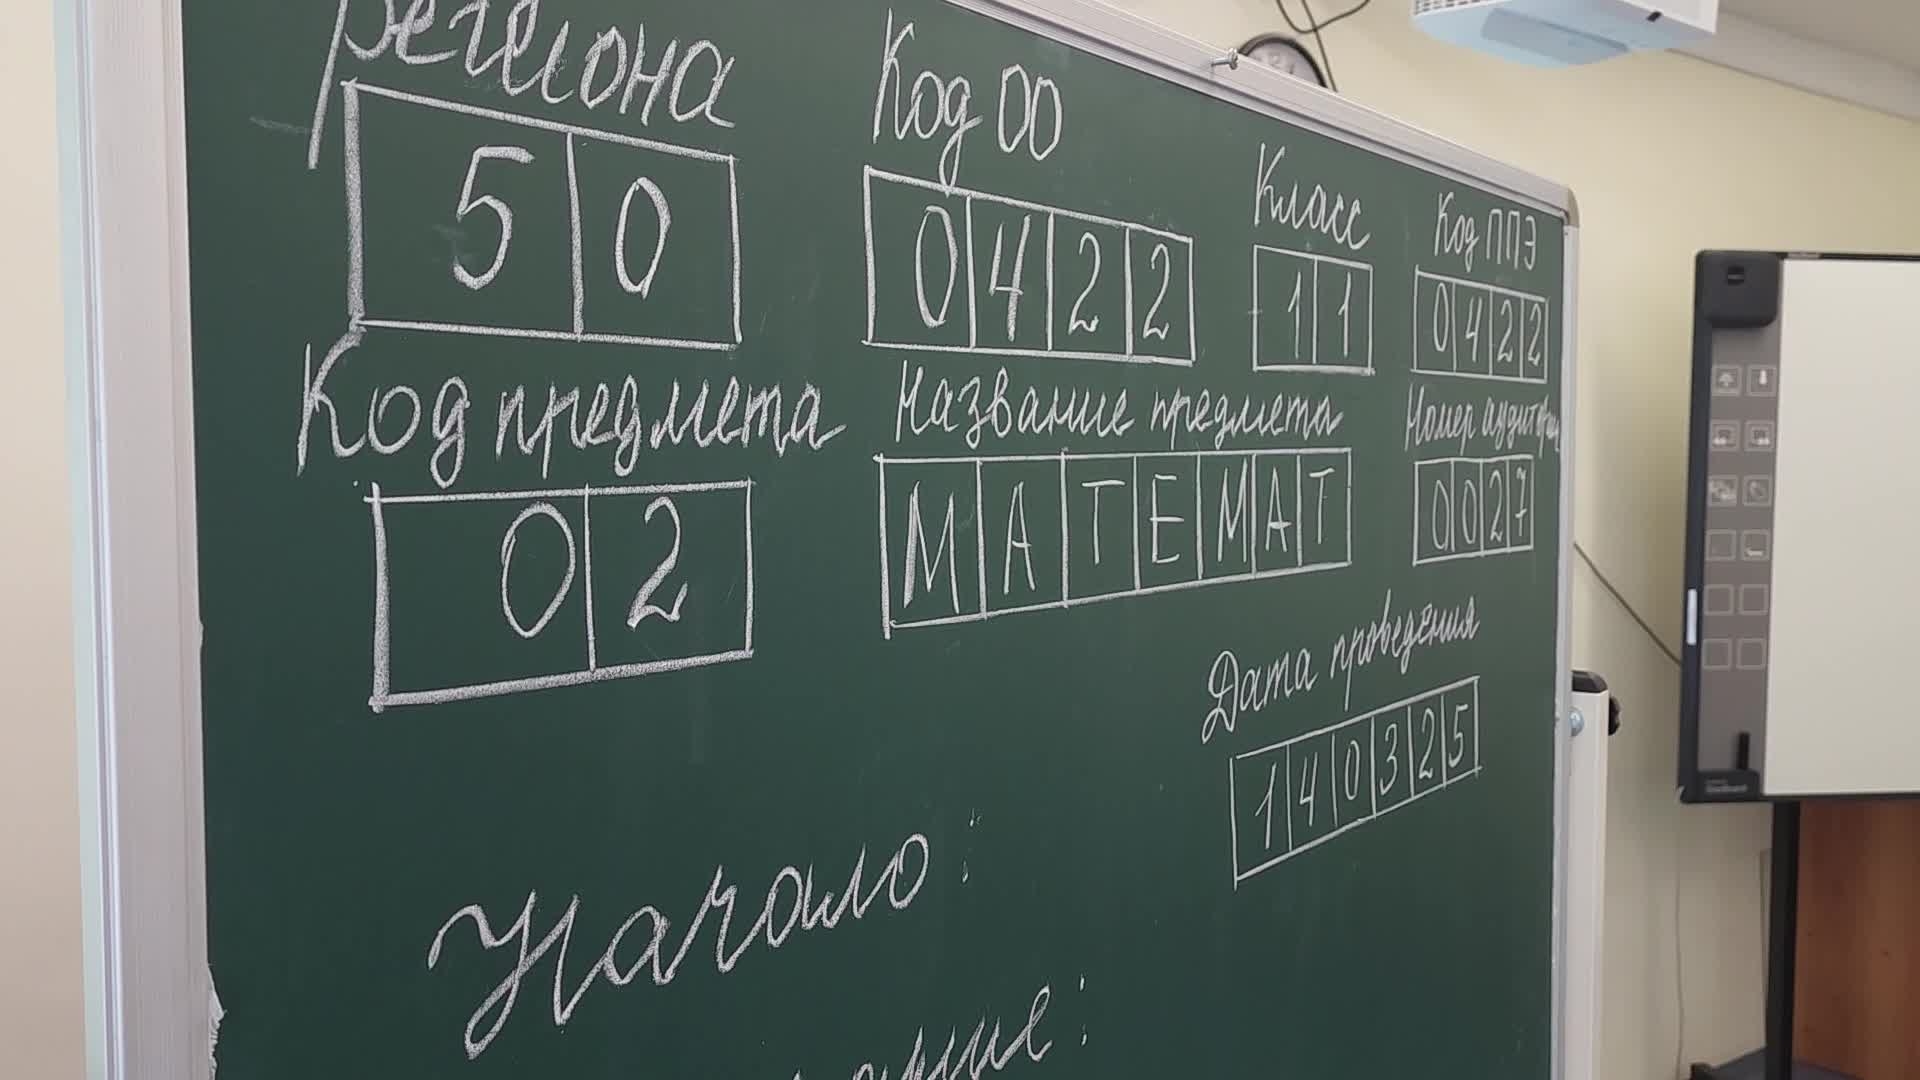 региона
50
Код ОО
0422
Класс
11
Код ППЭ
0422
Код предмета
02
Название предмета
МАТЕМАТ
Номер аудитории
0027
Дата проведения
140325
Начало: